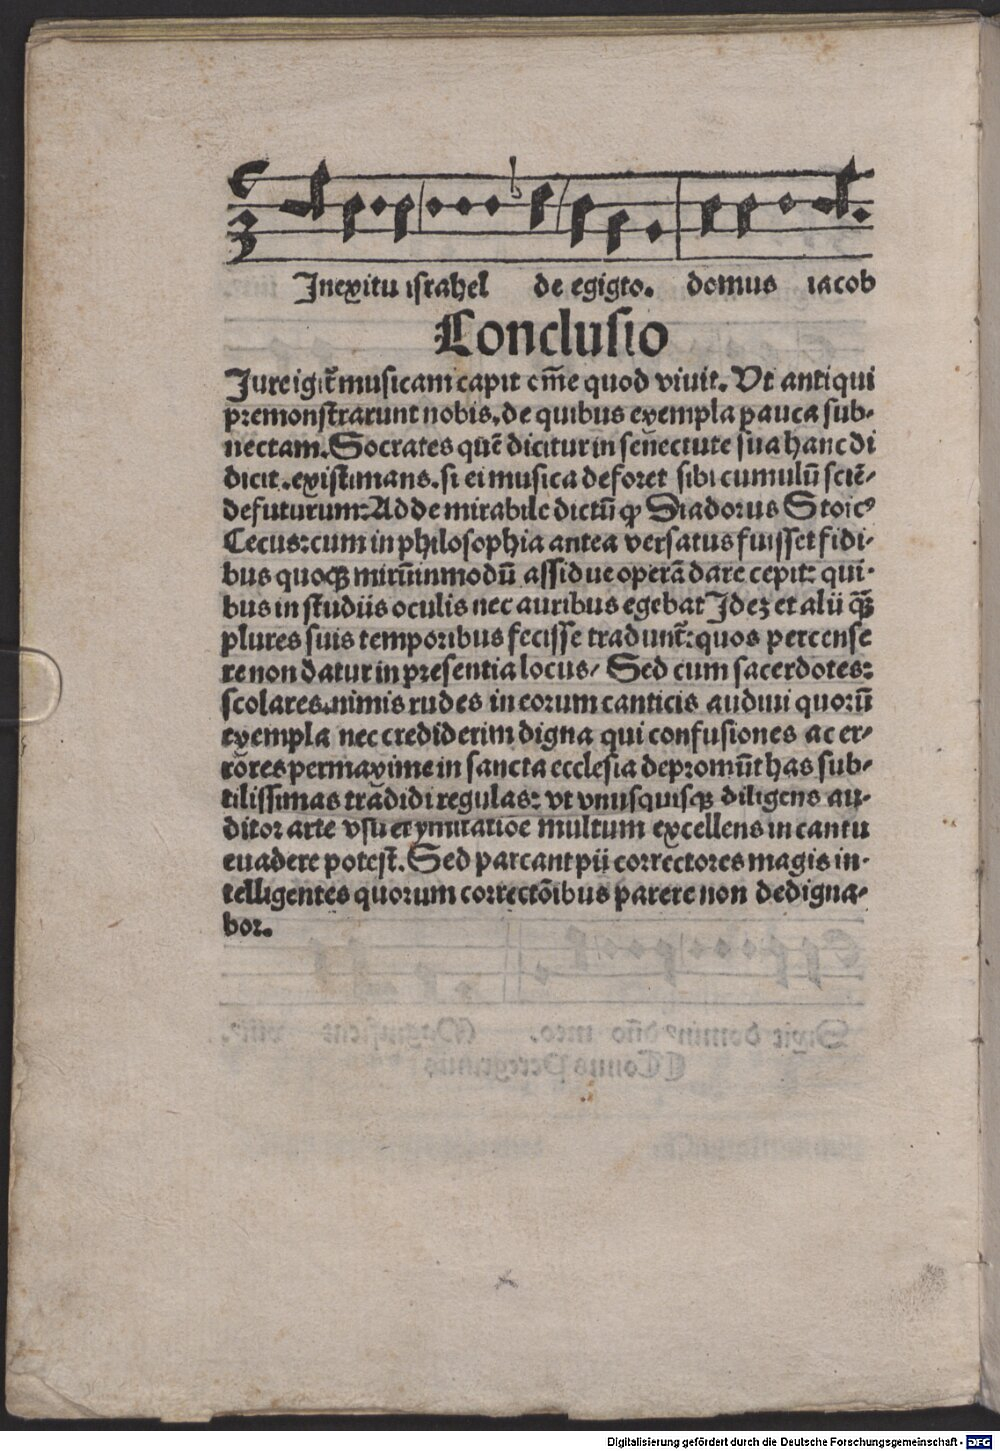 Inexitu israhel de egigto. domus iacob
Conclusio
Jure igit̃ musicam capit om̃e quod viuit. Vt antiqui
premonstrarunt nobis. de quibus exempla pauca sub-
nectam. Socrates quẽ dicitur in senectute sua hanc di
dicit. existimans. si ei musica deforet sibi cumulũ sciẽ-
defuturum: Adde mirabile dictũ ꝙ Diadorus Stoicꝰ
Cecus: cum in philosophia antea versatus fuisset fidi-
bus quoqꝫ mirũ inmodũ assidue operã dare cepit: qui-
bus in studiis oculis nec auribus egebat Idez et alii q̃ꝫ
plures suis temporibus fecisse tradunt̃: quos percense
re non datur in presentia locus/ Sed cum sacerdotes:
scolares. nimis rudes in eorum canticis audiui quorũ
exempla nec crediderim digna qui confusiones ac er-
rores permaxime in sancta ecclesia depromũt has sub-
tilissimas trãdidi regulas: vt vnusquisqꝫ diligens au-
ditor arte vsu et ymitatiõe multum excellens in cantu
euadere potest. Sed parcant pii correctores magis in-
telligentes quorum correctõibus parere non dedigna-
bor.
Digitalisierung gefördert durch die Deutsche Forschungsgemeinschaft - DFG